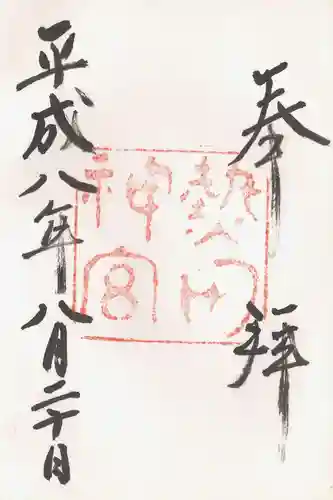 奉拝
熱田
神宮
平成八年八月二十日